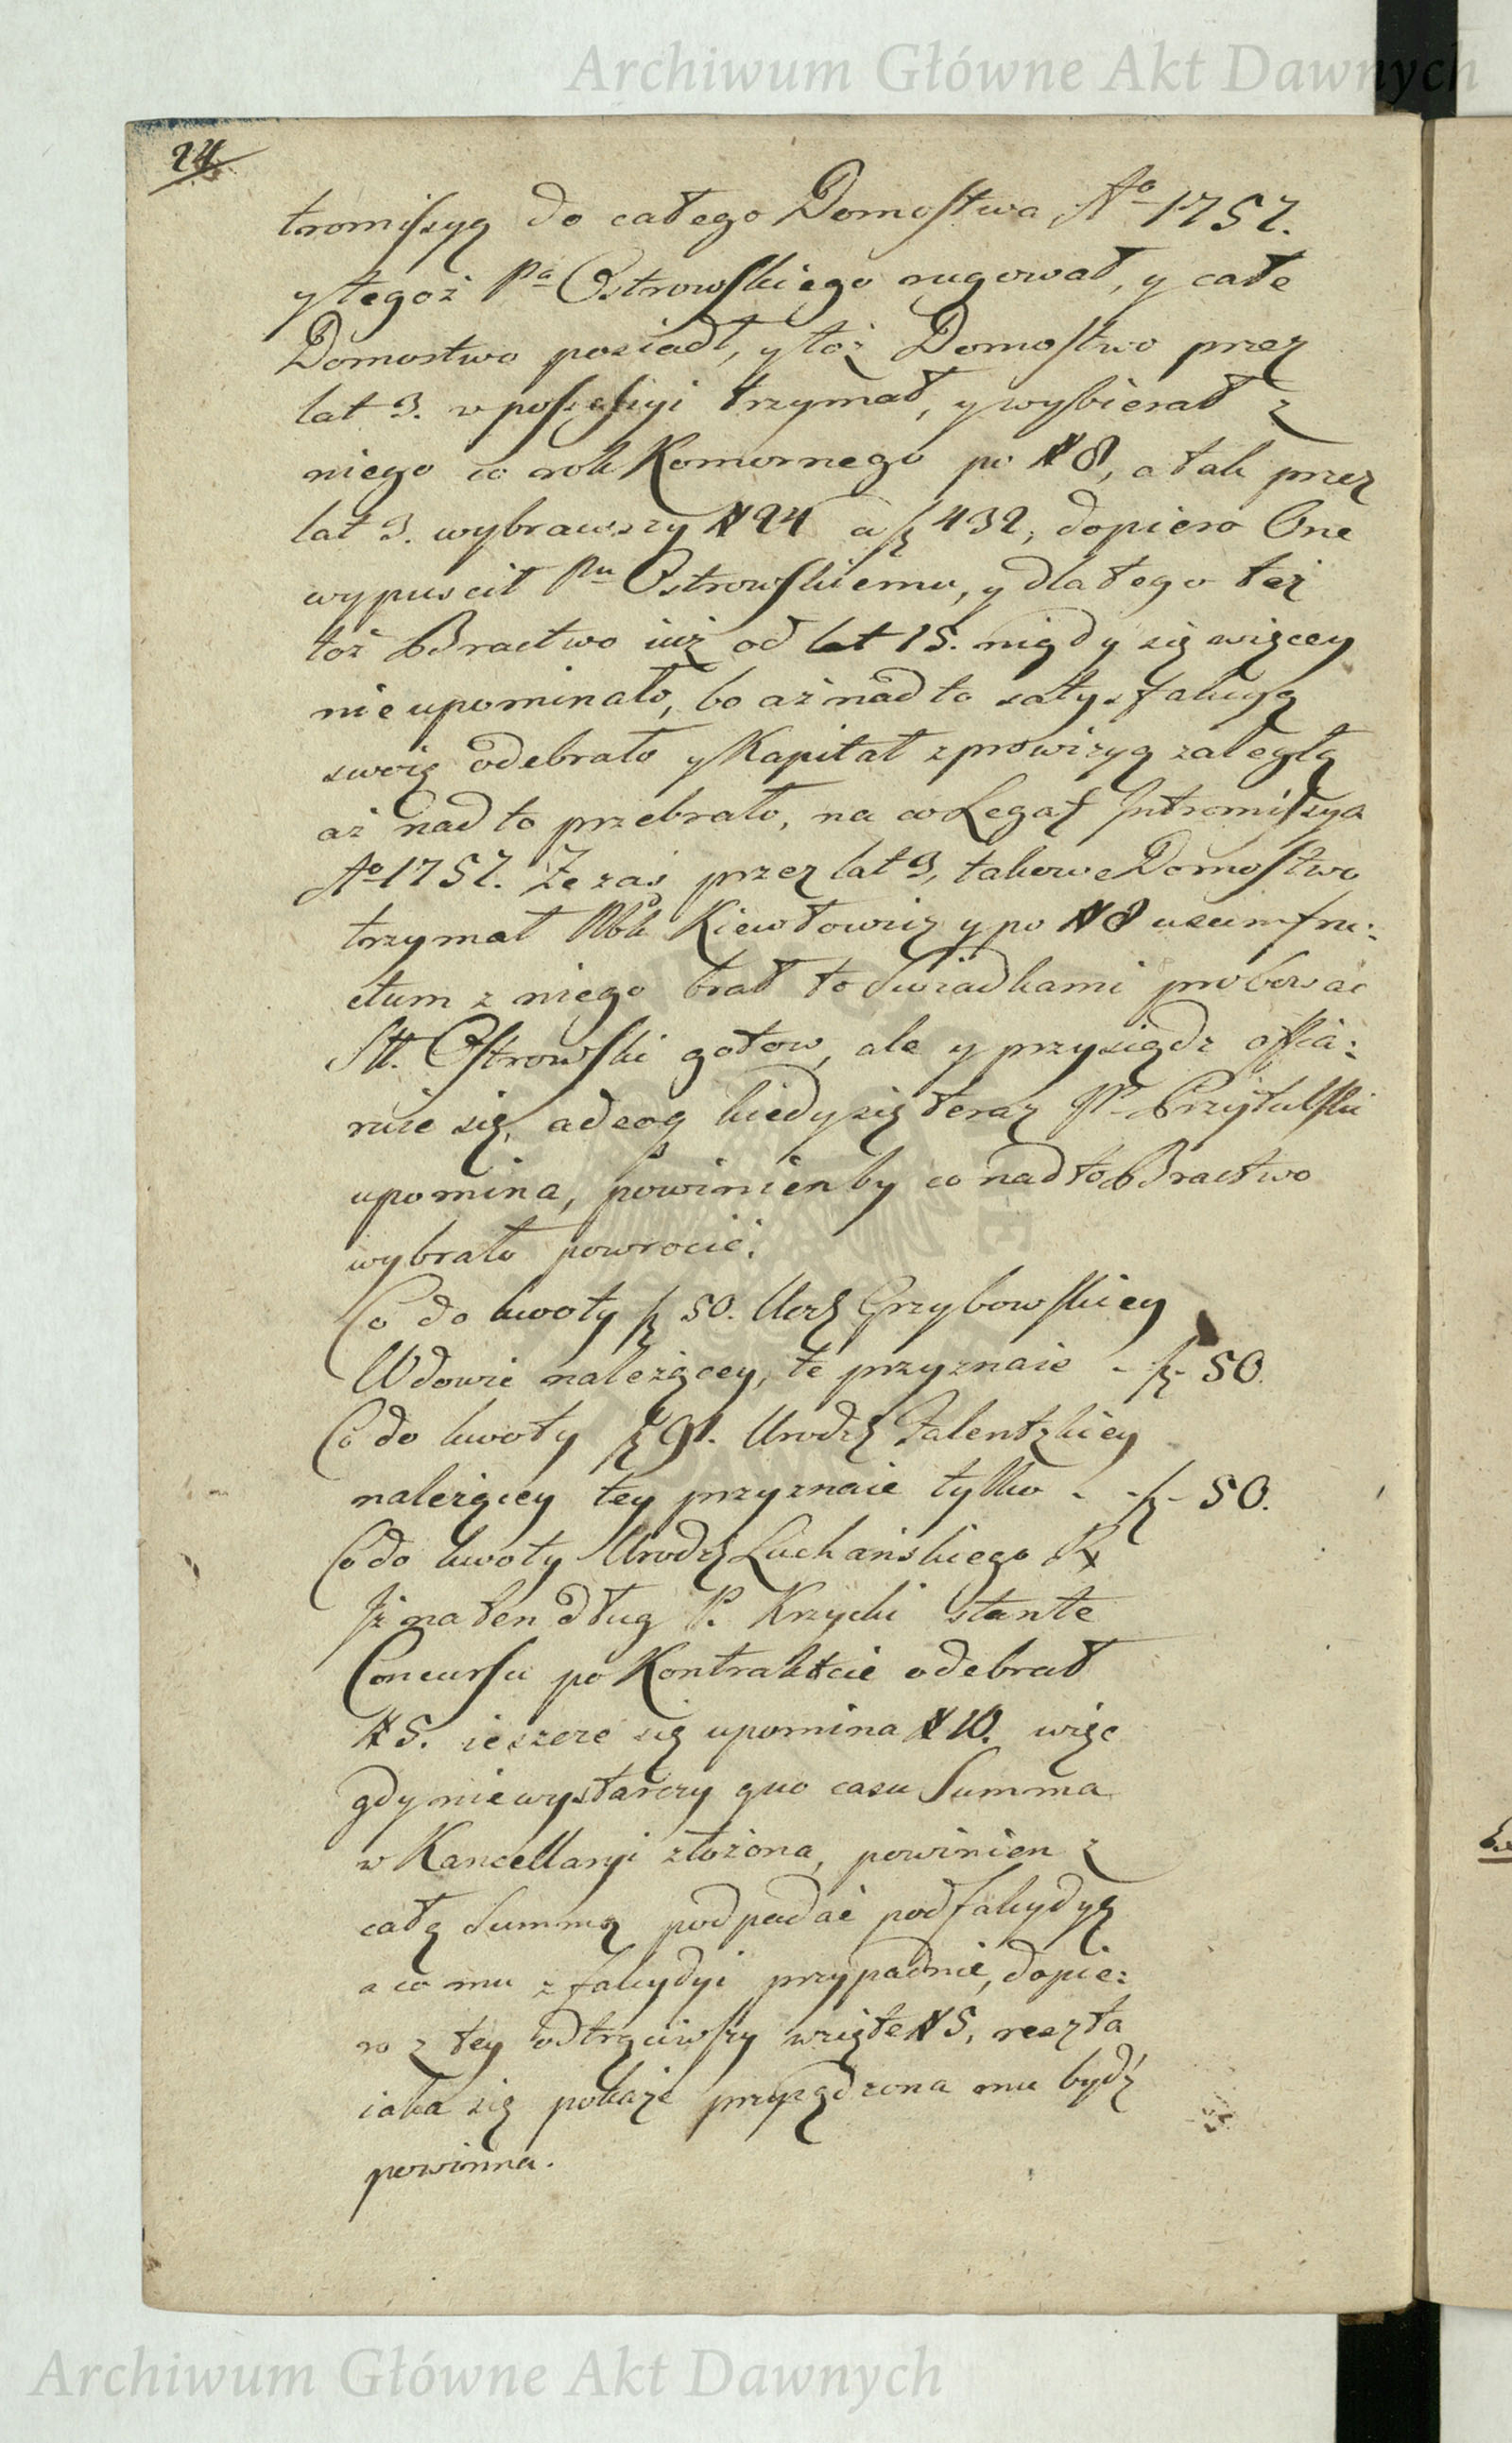 Archiwum Główne Akt Dawnych
24
tromissyą do całego Domostwa Aº 1757.
y tegoż Pª Ostrowskiego rugował, y całe
Domostwo posiadł, y toż Domostwo przez
lat 3. w possessyi trzymał, y wybierał z
niego co rok Komornego po # 8, a tak przez
lat 3. wybrawszy # 24 a f 432, dopiero One
wypuscił Pu Ostrowskiemu, y dla tego też
toż Bractwo iuż od lat 15. nigdy się więcey
nie upominało, bo aż nad to satysfakcyą
swoię odebrało y Kapitał z prowizyą zaległą
aż nad to przebrało, na co Legat Intromissya
Aº 1757. Ze zaś przez lat 3, takowe Domostwo
trzymał Kiewłowicz y po # 8 usumfru:
ctum z niego brał to Swiadkami probować
Sł. Ostrowski gotow, ale y przysiądz offia:
ruie się, adeoq kiedy się teraz Pº Przytulski
upomina, powinienby co nad to Bractwo
wybrało powrocić.
Co do kwoty f 50. Urodz Grzybowskiey
Wdowie należącey, te przyznaie - f - 50.
Co do kwoty f 91. Urodz Zalentzkiey
należącey tey przyznaie tylko - - f - 50.
Co do kwoty Urodz Luchańskiego
Iż na ten dług P. Krzycki stante
Concursu po Kontrakcie odebrał
# 5. ieszcze się upomina # 10. więc
gdy niewystarczy quo casu Summa
w Kancellaryi złożona, powinien z
całą Summą podpadać pod falcydyą
a co mu z falcydyi przypadnie, dopie:
ro z tey odtrąciwszy wzięte # 5, reszta
iaka się pokaże przysądzona mu bydź
powinna.
Archiwum Główne Akt Dawnych